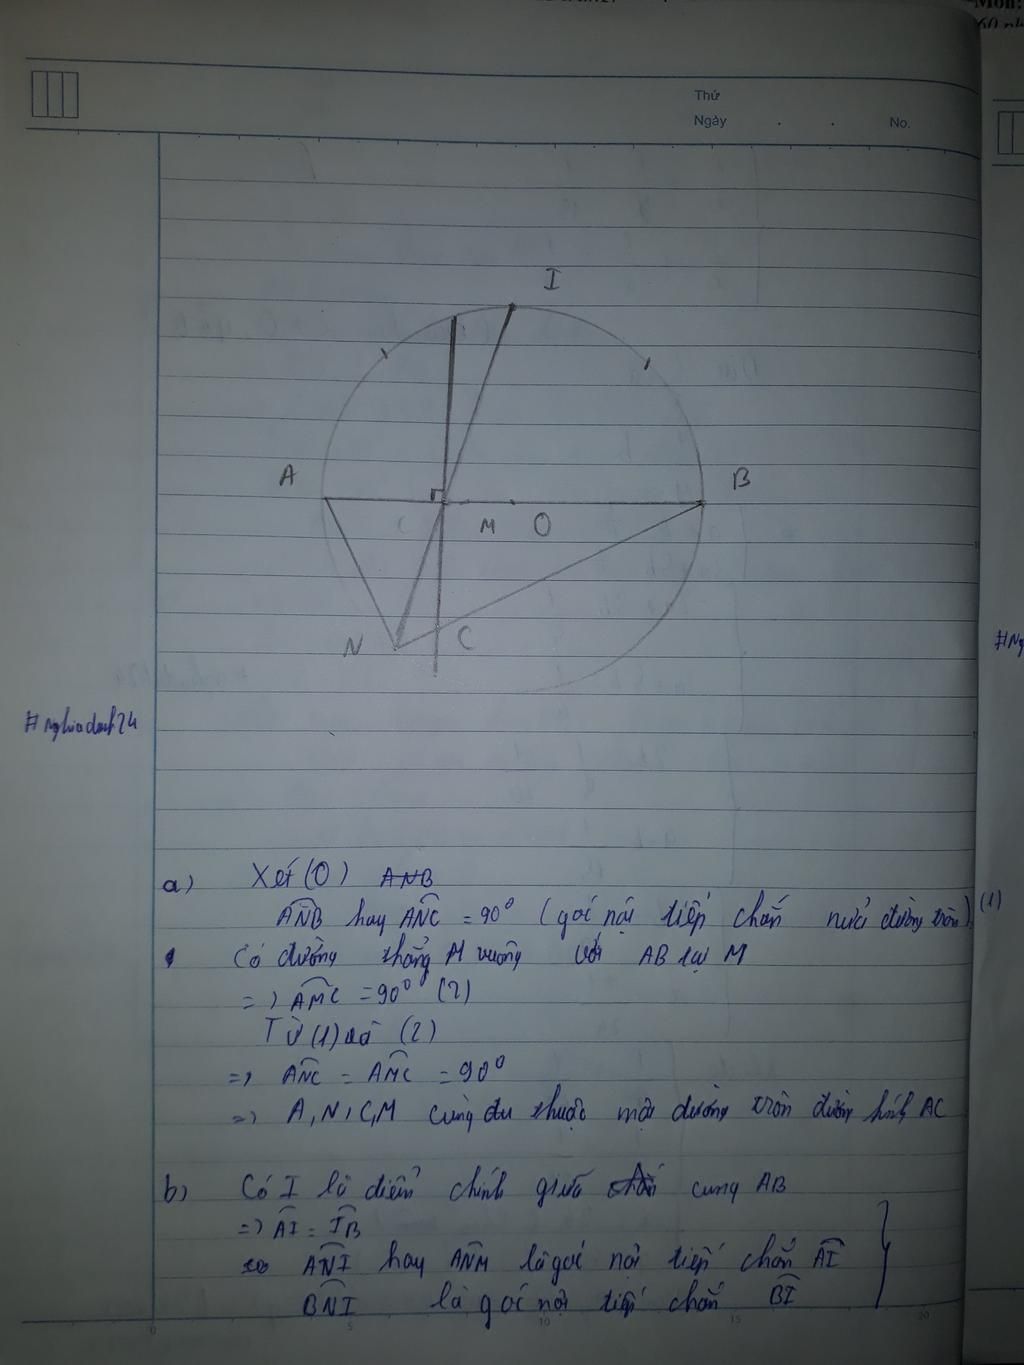 Môn:
60 ph
Thứ
Ngày . . No.
I
A
B
M O
N
C
#Ng
#nghiadanh24
a) Xét (O) ANB
ANB hay ANC = 90° (góc nội tiếp chắn nửa đường tròn) (1)
Có đường thẳng M vuông với AB tại M
=> AMC = 90° (2)
Từ (1) và (2)
=> ANC = AMC = 90°
=> A, N, C, M cùng thuộc một đường tròn đường kính AC
b) Có I là điểm chính giữa cung AB
=> AI = IB
ANI hay ANM là góc nội tiếp chắn AI
BNI là góc nội tiếp chắn BI
0 5 10 15 20